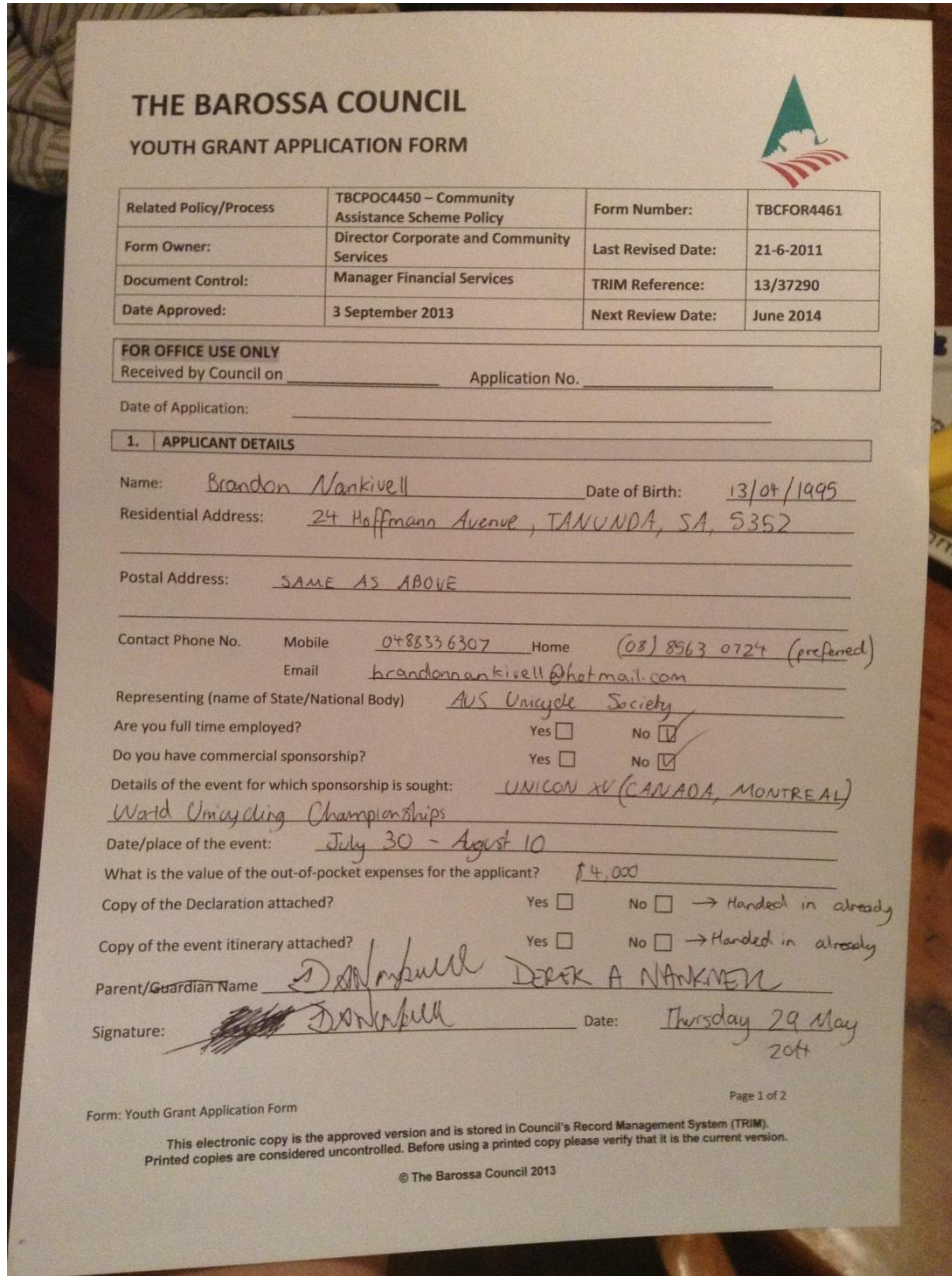 THE BAROSSA COUNCIL
YOUTH GRANT APPLICATION FORM
Related Policy/Process TBCPOC4450 – Community Assistance Scheme Policy Form Number: TBCFOR4461
Form Owner: Director Corporate and Community Services Last Revised Date: 21-6-2011
Document Control: Manager Financial Services TRIM Reference: 13/37290
Date Approved: 3 September 2013 Next Review Date: June 2014
FOR OFFICE USE ONLY
Received by Council on Application No.
Date of Application:
1. APPLICANT DETAILS
Name: Brandon Nankivell Date of Birth: 13/04/1995
Residential Address: 24 Hoffmann Avenue, TANUNDA, SA, 5352
Postal Address: SAME AS ABOVE
Contact Phone No. Mobile 0488336307 Home (08) 8563 0724 (preferred)
Email brandonnankivell@hotmail.com
Representing (name of State/National Body) AUS Unicycle Society
Are you full time employed? Yes No
Do you have commercial sponsorship? Yes No
Details of the event for which sponsorship is sought: UNICON XV (CANADA, MONTREAL)
World Unicycling Championships
Date/place of the event: July 30 - August 10
What is the value of the out-of-pocket expenses for the applicant? $4,000
Copy of the Declaration attached? Yes No → Handed in already
Copy of the event itinerary attached? Yes No → Handed in already
Parent/Guardian Name DEREK A NANKIVELL
Signature: Date: Thursday 29 May
2014
Page 1 of 2
Form: Youth Grant Application Form
This electronic copy is the approved version and is stored in Council's Record Management System (TRIM).
Printed copies are considered uncontrolled. Before using a printed copy please verify that it is the current version.
© The Barossa Council 2013